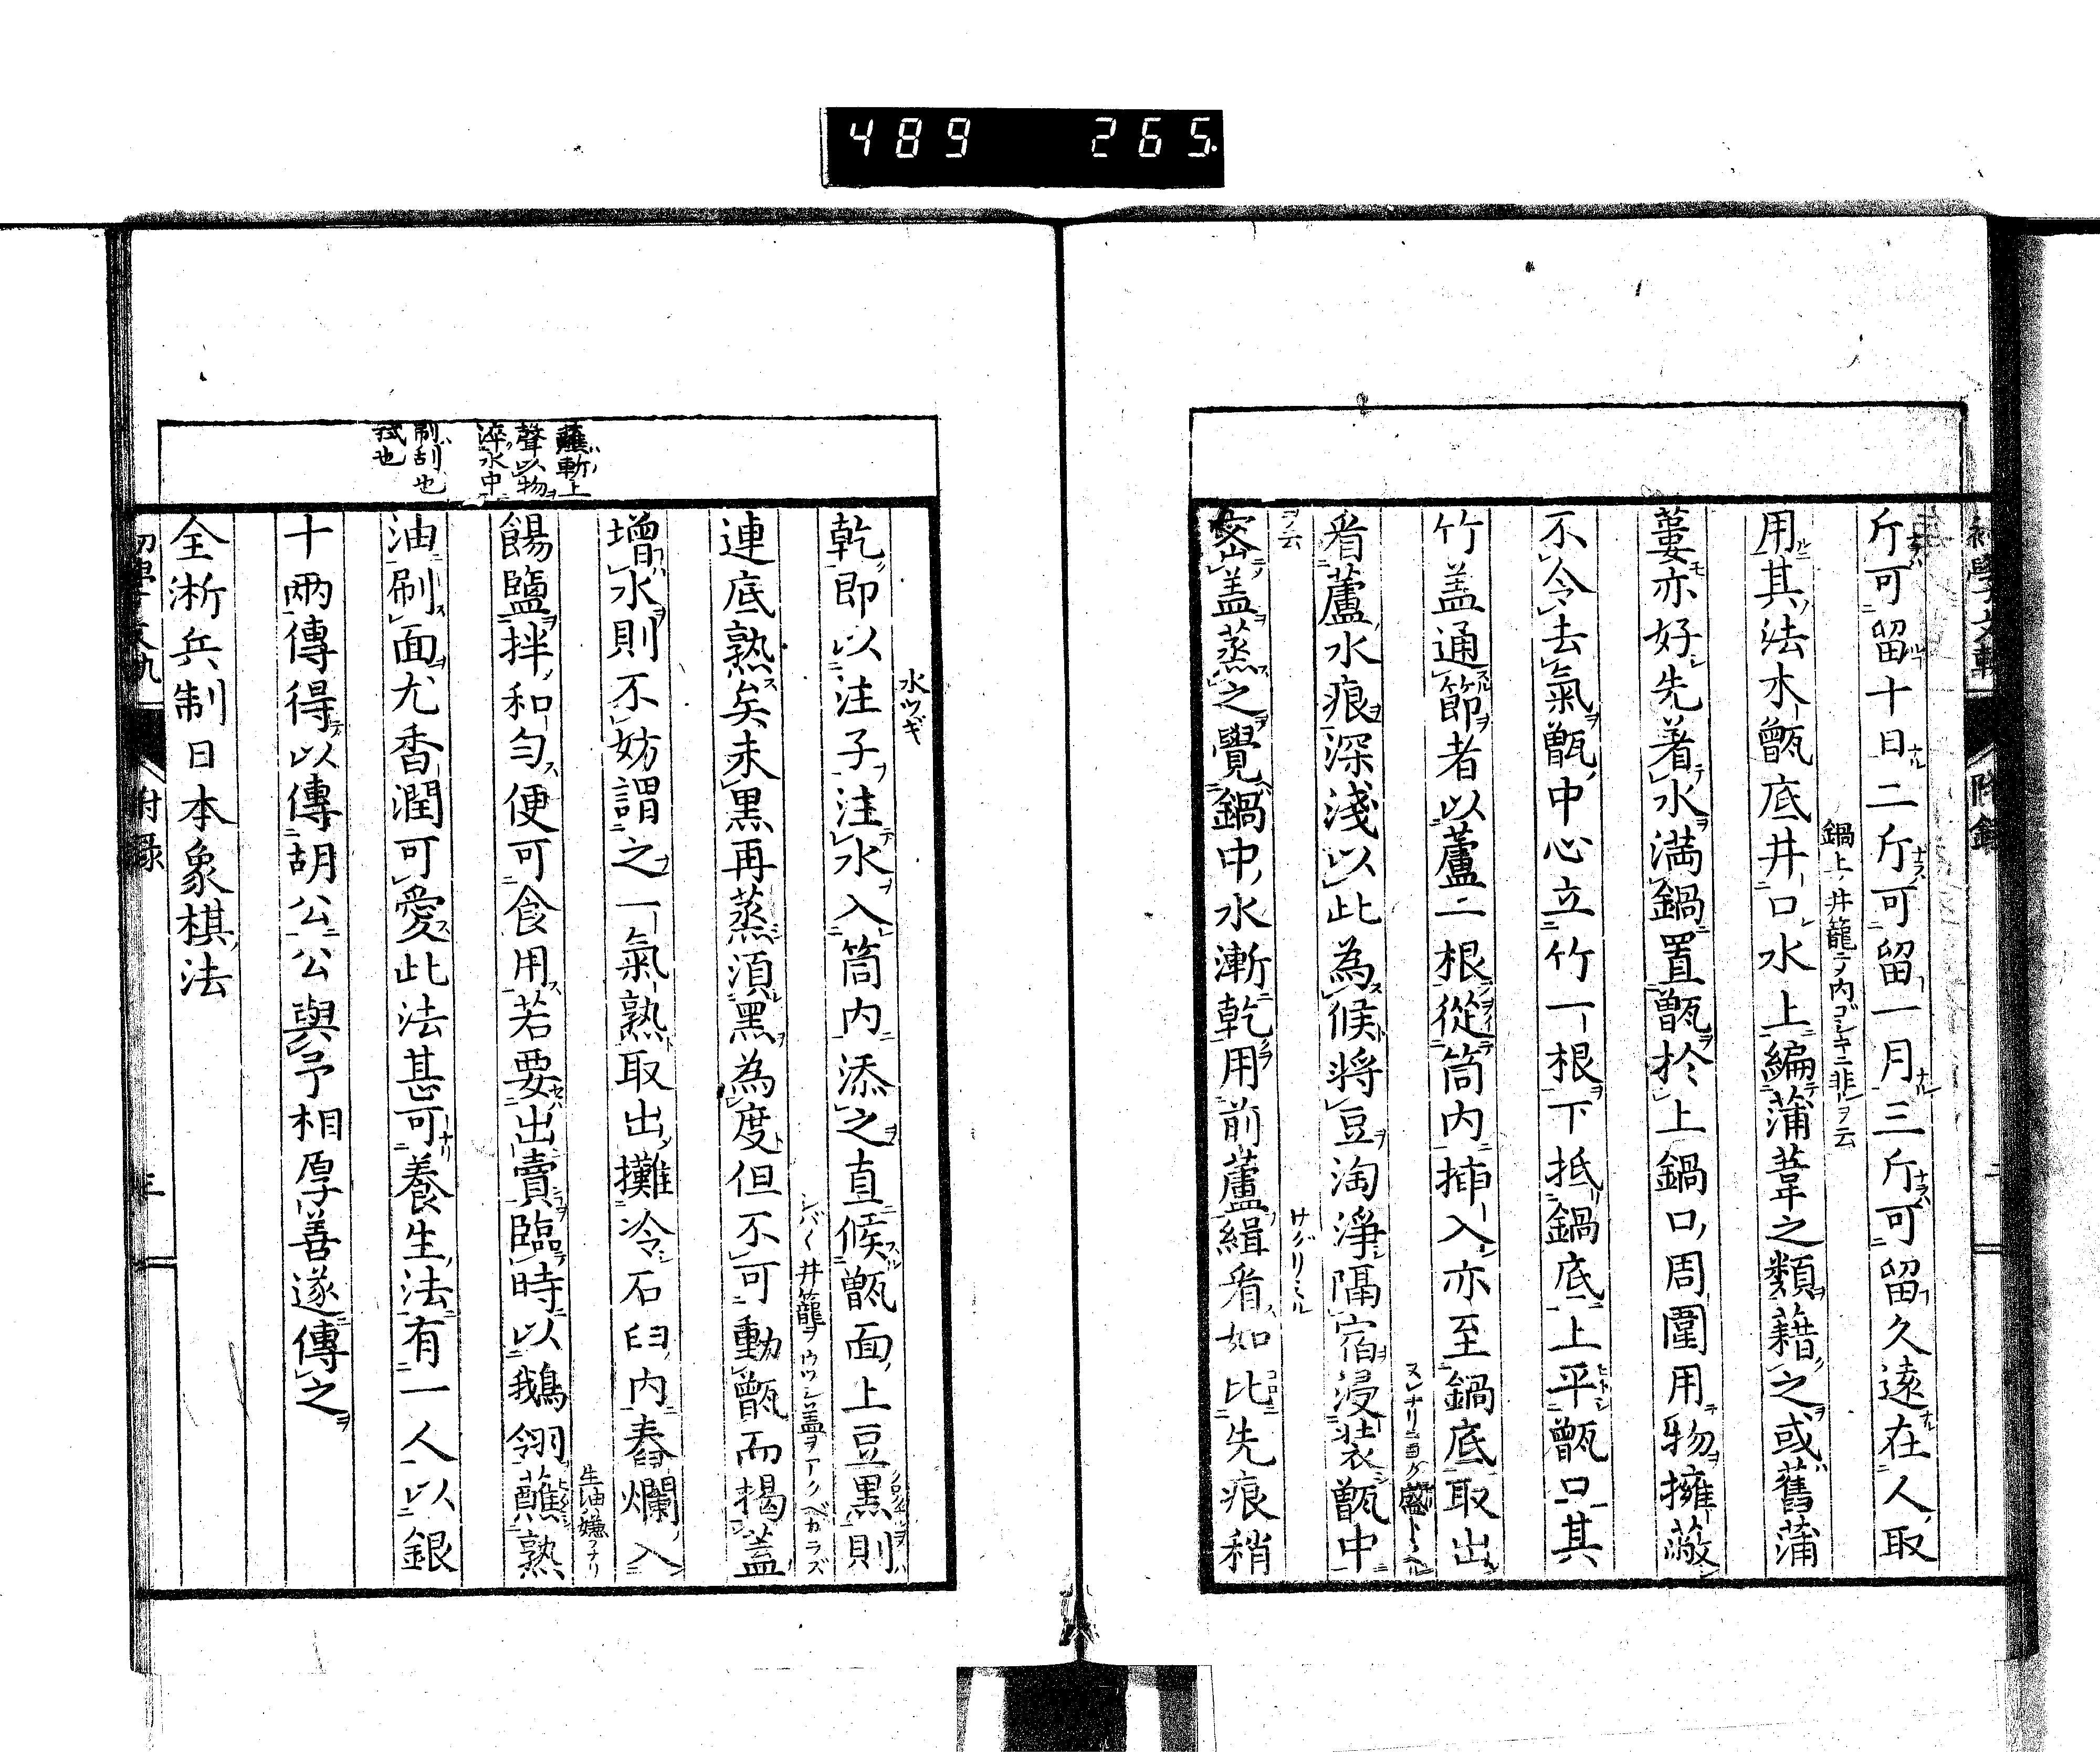 489 265
斤可留十日二斤可留一月三斤可留久遠在人取
鍋上ノ井籠テノ内ゴシキニ非ルヲ云
用其法木甑底井口水上編蒲葦之類藉之或舊蒲
蔞亦好先着水満鍋置甑於上鍋口周圍用物擁蔽
不令去氣甑中心立竹一根下抵鍋底上平甑口其
竹盖通節者以蘆二根從筒内挿入亦至鍋底取出
看蘆水痕深淺以此為候將豆淘淨隔宿浸装甑中
ヲ云
密盖蒸之覺鍋中水漸乾用前蘆緝看如比先痕稍
附録
水ツギ
乾即以注子注水入筒内添之直候甑面上豆黒則
シバ〱井籠ヲウツシ盖ヲアクベカラズ
連底熟矣未黒再蒸須黒為度但不可動甑而掲蓋
増水則不妨謂之一氣熟取出攤冷石臼内舂爛入
生油ノ嫌フナリ
蘸斬上
聲以物
淬水中
餳鹽拌和勻便可食用若要出賣臨時以鵝翎蘸熟
刷刮也
拭也
油刷面尤香潤可愛此法甚可養生法有一人以銀
十兩傳得以傳胡公公與予相厚善遂傳之
全淅兵制日本象棋法
附録
三